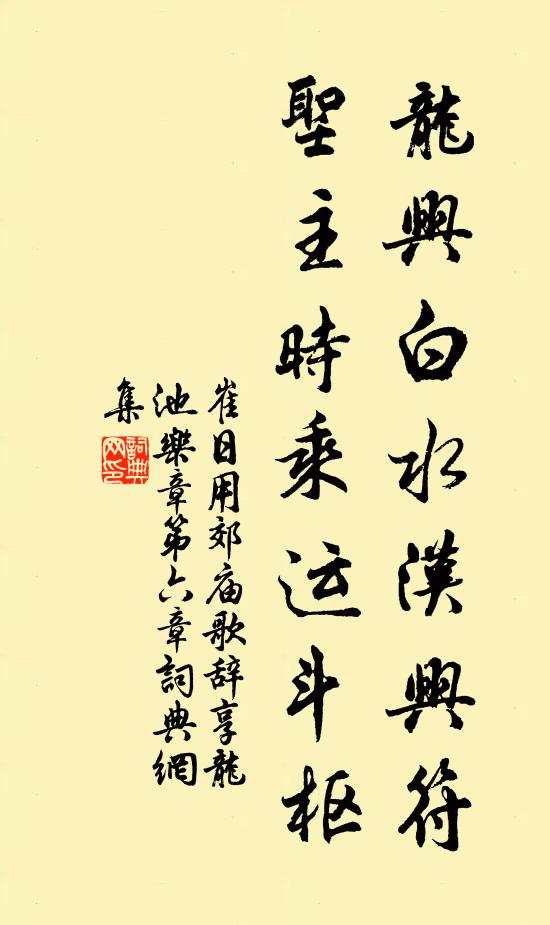 龍興白水漢興符
聖主時乘运斗枢
崔日用郊庙歌辞享龍
池樂章第六章詞典網
集
詞典网印